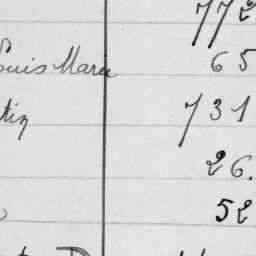 772
Louis Marie 65
tin 731
26.
52